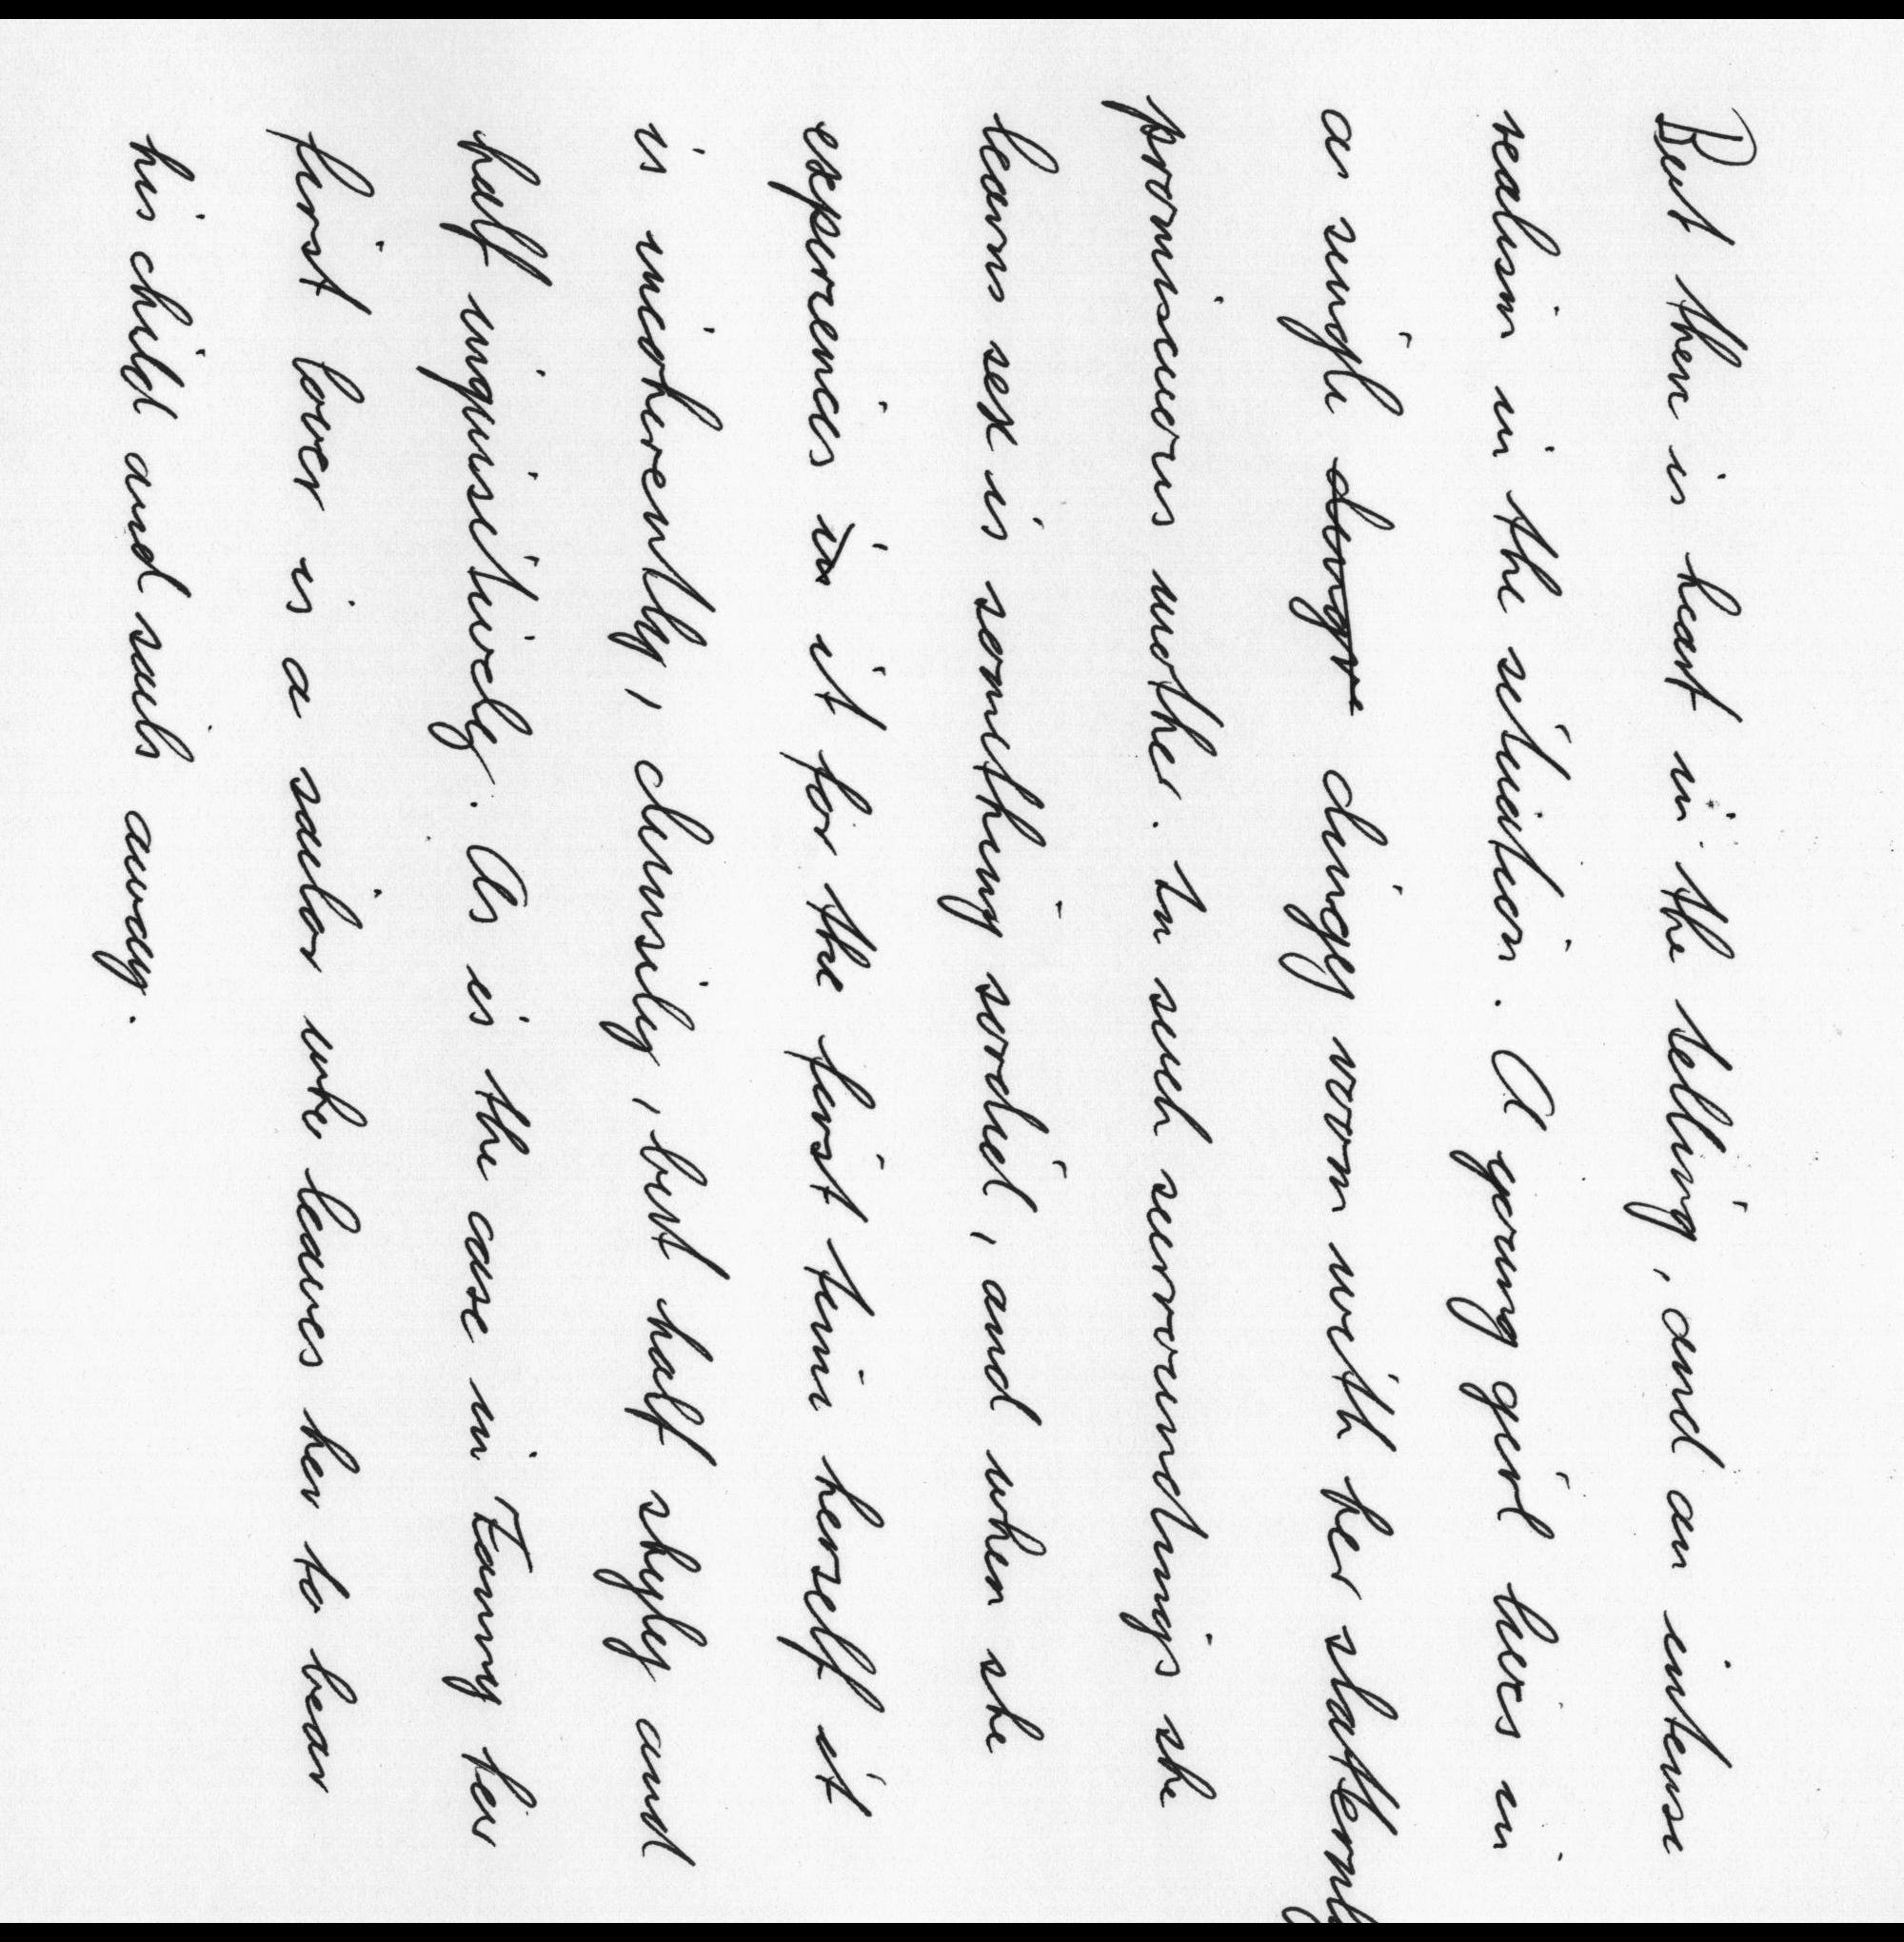 But there is heart in the telling, and an intense
realism in the situation. A young girl lives in
as single dingy room with her slatternly
promiscuous mother. In such surroundings she
learns sex is something sordid, and when she
experiences in it for the first time herself it
is incoherently, clumsily, but half shyly and
half inquisitively. As is the case in Fanny her
first lover is a sailor who leaves her to bear
his child and sails away.